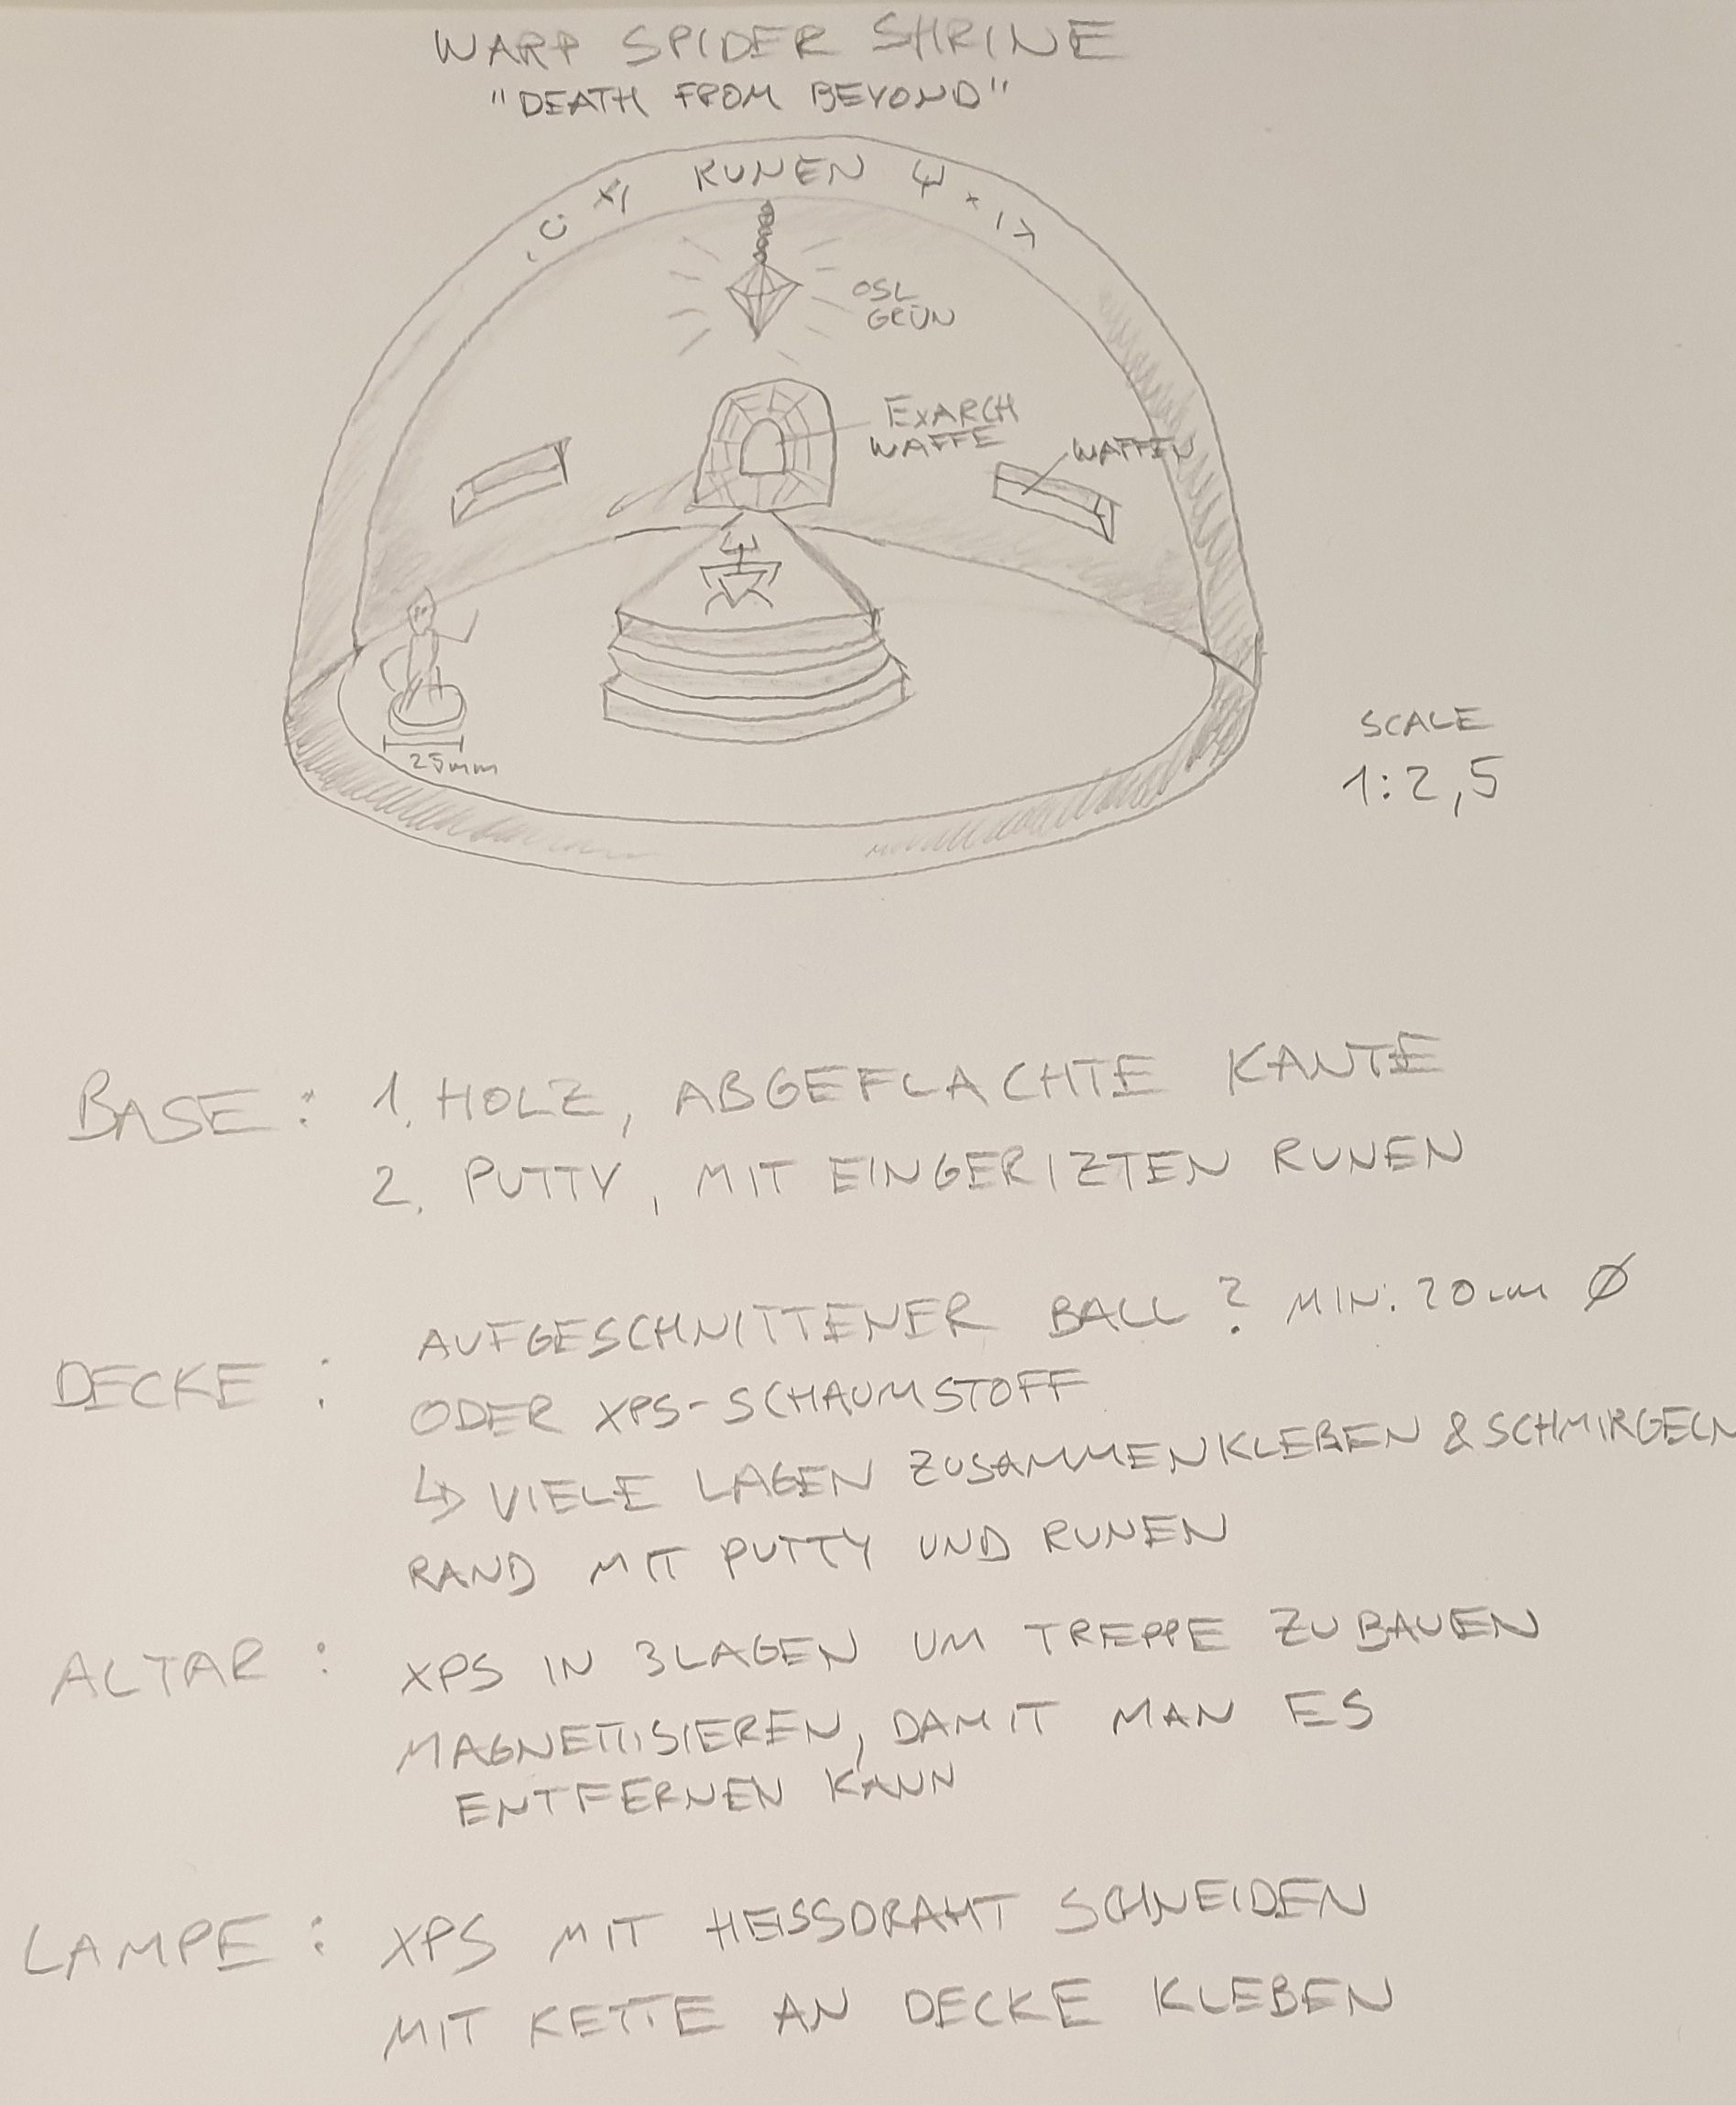 WARP SPIDER SHRINE
"DEATH FROM BEYOND"
RUNEN
OSL
GRÜN
EXARCH
WAFFE
WAFFEN
25mm
SCALE
1:2,5
BASE: 1. HOLZ, ABGEFLACHTE KANTE
2. PUTTY, MIT EINGERIZTEN RUNEN
DECKE: AUFGESCHNITTENER BALL? MIN. 20cm Ø
ODER XPS-SCHAUMSTOFF
↳ VIELE LAGEN ZUSAMMENKLEBEN & SCHMIRGELN
RAND MIT PUTTY UND RUNEN
ALTAR: XPS IN 3 LAGEN UM TREPPE ZU BAUEN
MAGNETISIEREN, DAMIT MAN ES
ENTFERNEN KANN
LAMPE: XPS MIT HEISSDRAHT SCHNEIDEN
MIT KETTE AN DECKE KLEBEN